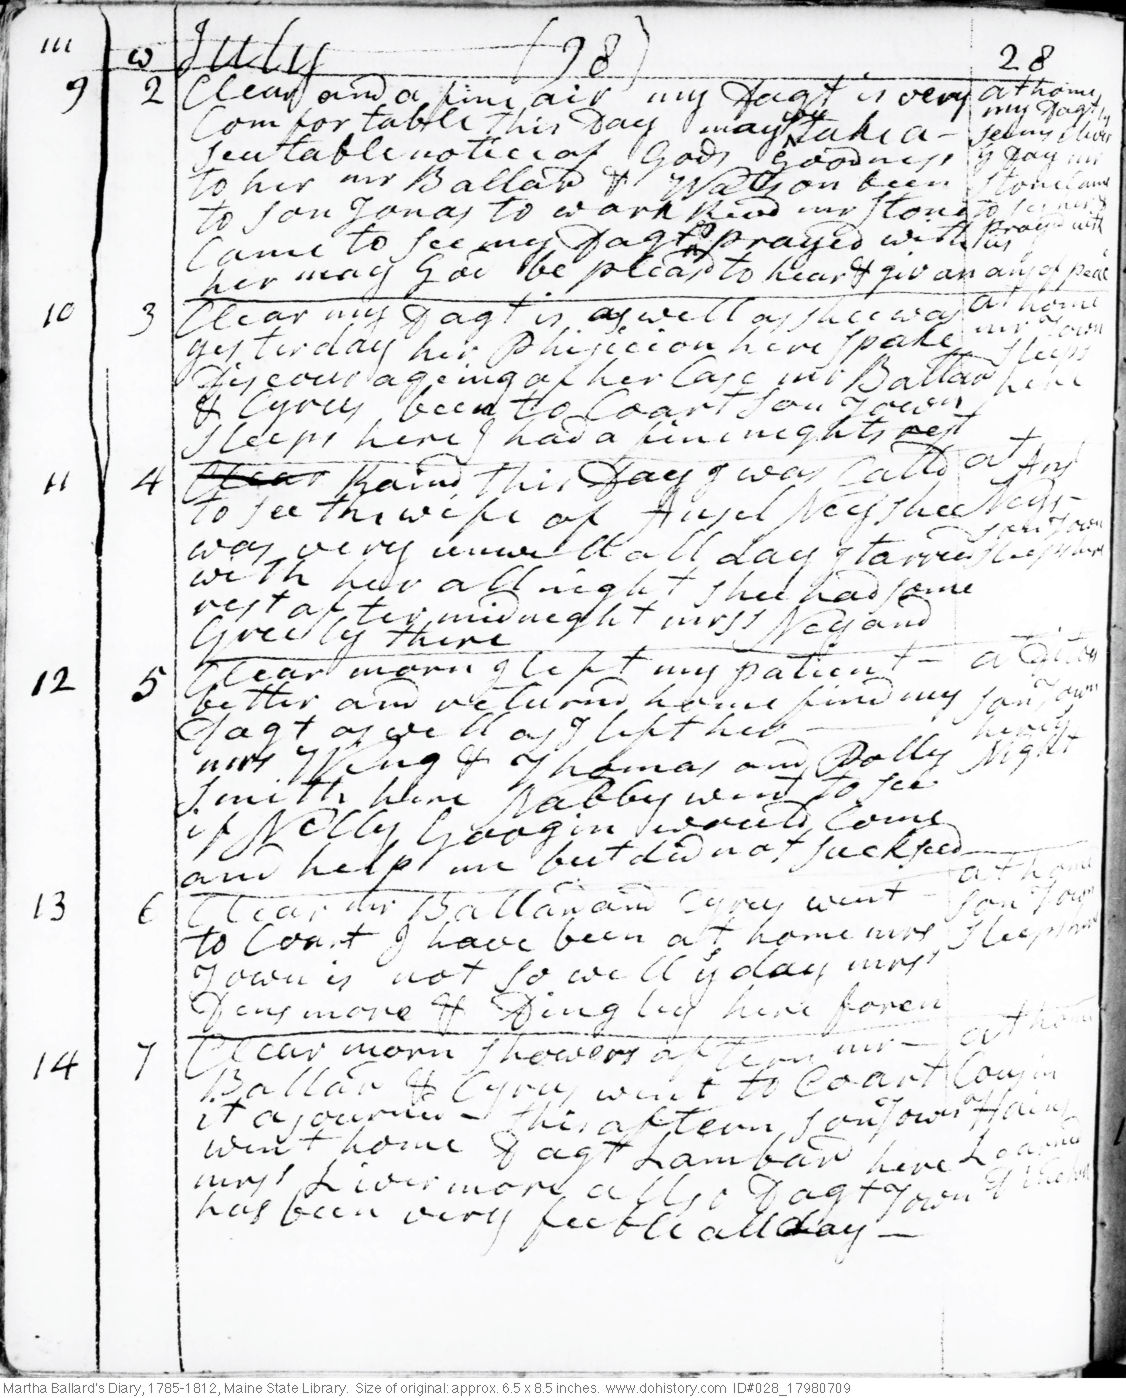 111 w July (98) 28
9 2 Clear and a fine air my Dagt is very at home
Comfortable this Day may we take a - my Dagt
seutable notice of Gods Goodness
to her mr Ballard & Watson been
to son Jonas to work Revd mr Stone
Came to see my Dagt & prayed with
her may God be pleasd to hear & giv an ans of peac
10 3 Clear my Dagt is as well as shee was at home
yesterday her Phisicion here spake mr Town
Discourageing of her Case mr Ballard sleeps
& Cyrus been to Coart Son Town here
sleeps here I had a fine nights rest
11 4 Clear Raind this Day I was Calld at Ans
to see the wife of Ansel Ney shee Neys
was very unwell all day I tarried son Town
with her all night shee had some
rest after midneght mrss Ney and
Greely there
12 5 Clear morn I left my patient -
better and returnd home find my son Town
Dagt as well as I left her here
mrs Wing & Thomas and Polly Night
Smith here Nabby went to see
if Nelly Googin would Come
and help me but did not suckseed
13 6 Clear mr Ballard and Cyrus went - at home
to Coart I have been at home mrs son Town
Town is not so well y day mrss sleeps here
Densmore & Dingley here foren
14 7 Clear morn showers aftern mr - at home
Ballard & Cyrus went to Coart Cousin
it ajournd - this aftern son Town Hains
went home Dagt Lambard here Learned
mrss Livermore allso Dagt Town
has been very feeble all day -
Martha Ballard's Diary, 1785-1812, Maine State Library. Size of original: approx. 6.5 x 8.5 inches. www.dohistory.com ID#028_17980709